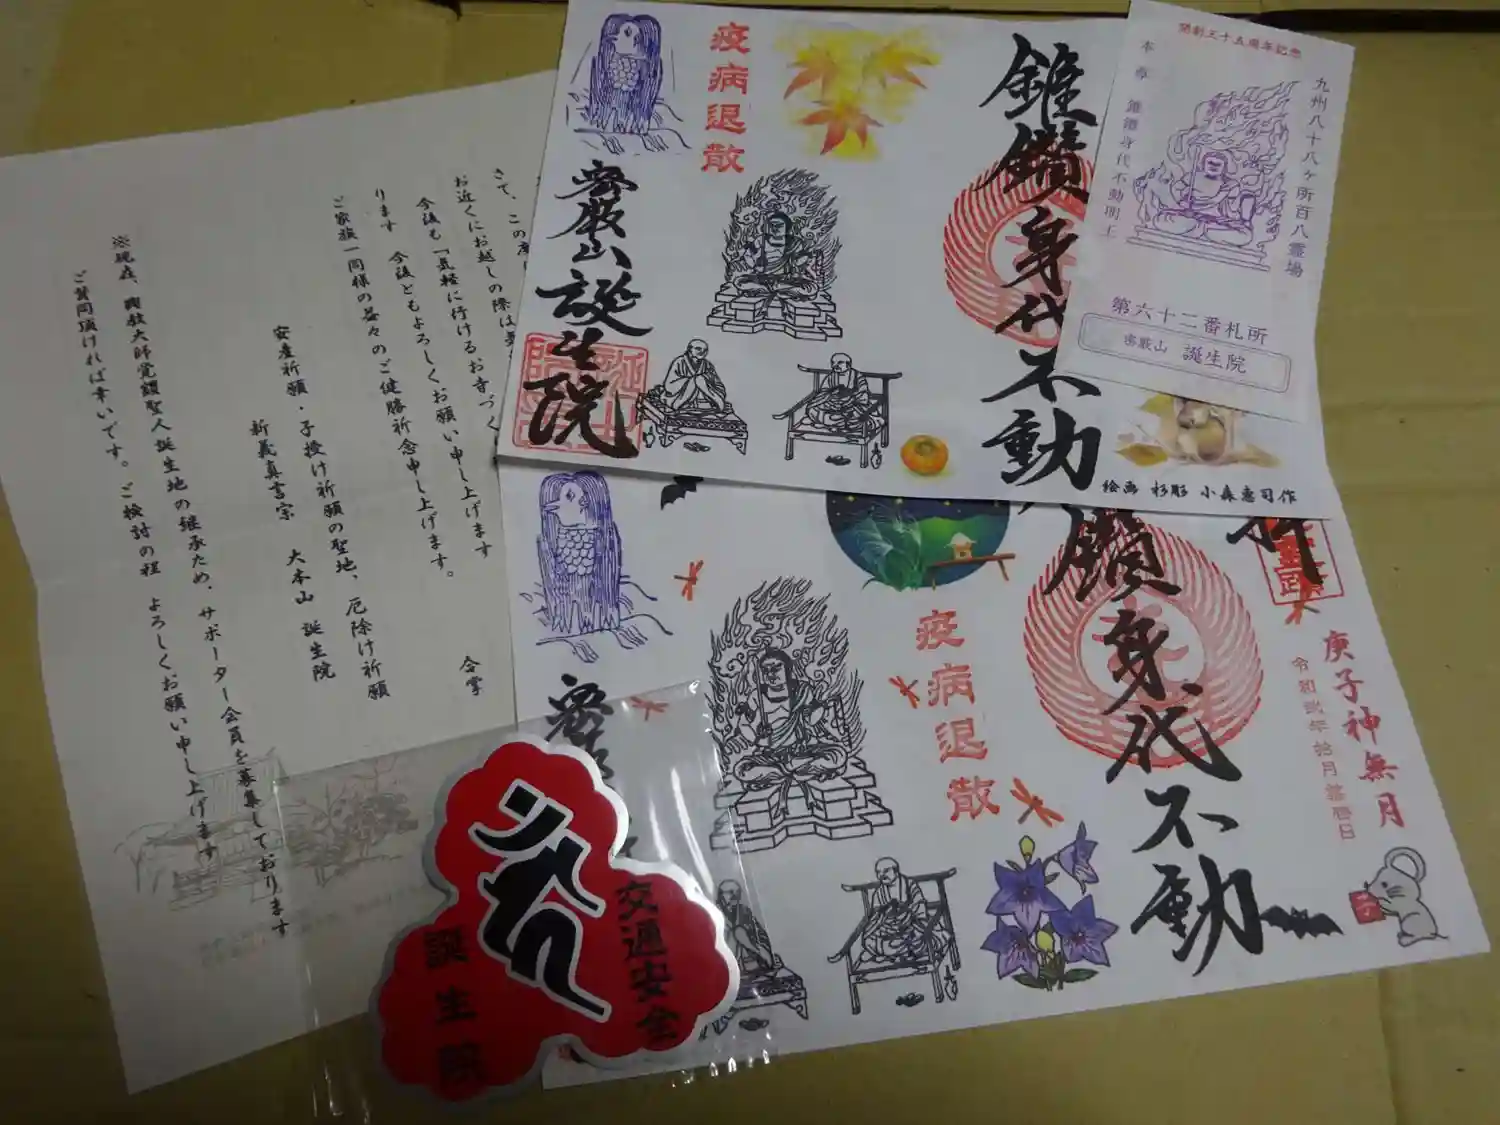 疫病退散
錐鑽身代不動
密厳山誕生院
絵画 杉彫 小森惠司作
開創三十五周年記念
九州八十八ヶ所百八霊場
本尊 錐鑽身代不動明王
第六十二番札所
密厳山 誕生院
鑽身代不動
疫病退散
庚子神無月
令和弐年拾月
子
交通安全
誕生院
さて、この度
お近くにお越しの際は
今後も「気軽に行けるお寺づく
お願い申し上げます
ります 今後ともよろしくお願い申し上げます。
ご家族一同様の益々のご健勝祈念申し上げます。
合掌
安産祈願・子授け祈願の聖地、厄除け祈願
新義真言宗 大本山 誕生院
※現在、興教大師覚鑁聖人誕生地の継承ため、サポーター会員を募集しております
ご賛同頂ければ幸いです。ご検討の程 よろしくお願い申し上げます